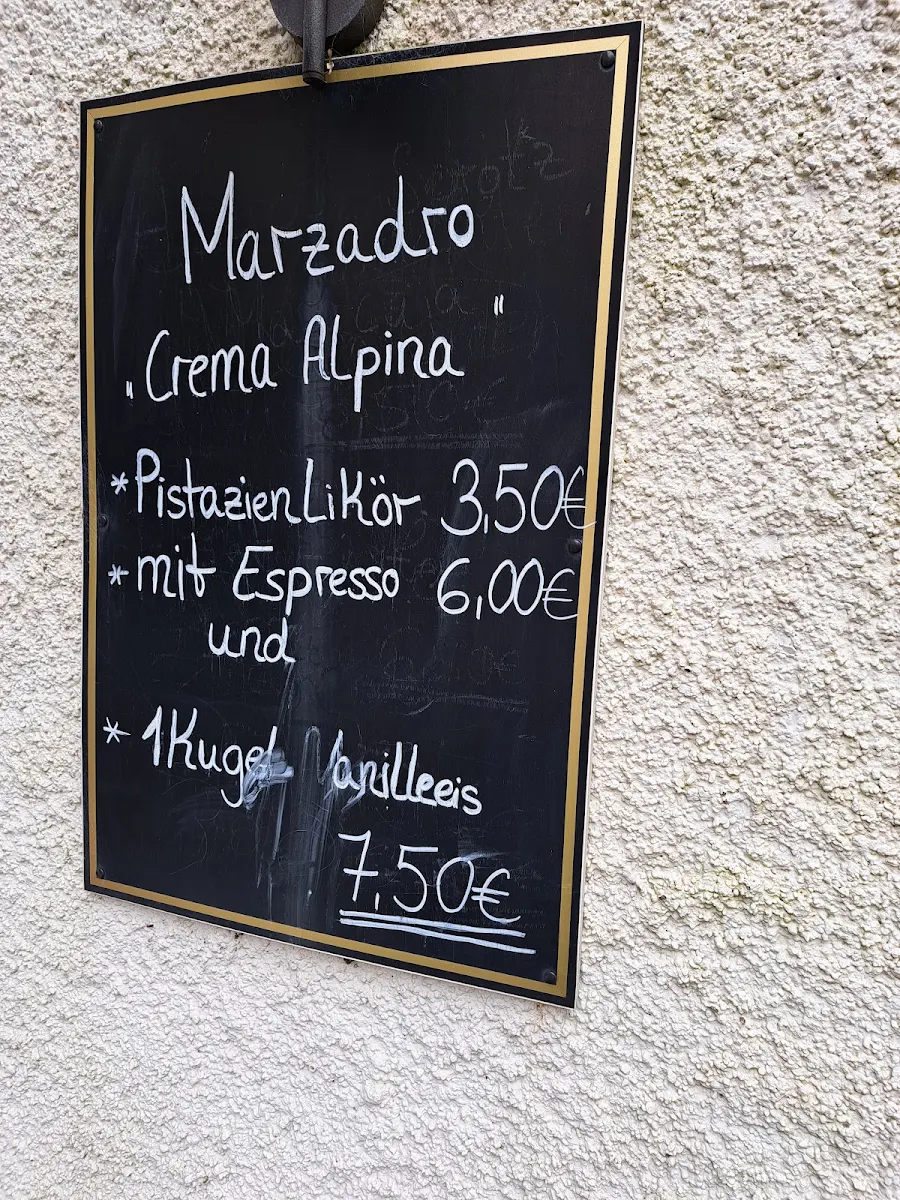 Marzadro
„Crema Alpina"
* Pistazienlikör 3,50€
* mit Espresso 6,00€
und
* 1 Kugel Vanilleeis
7,50€